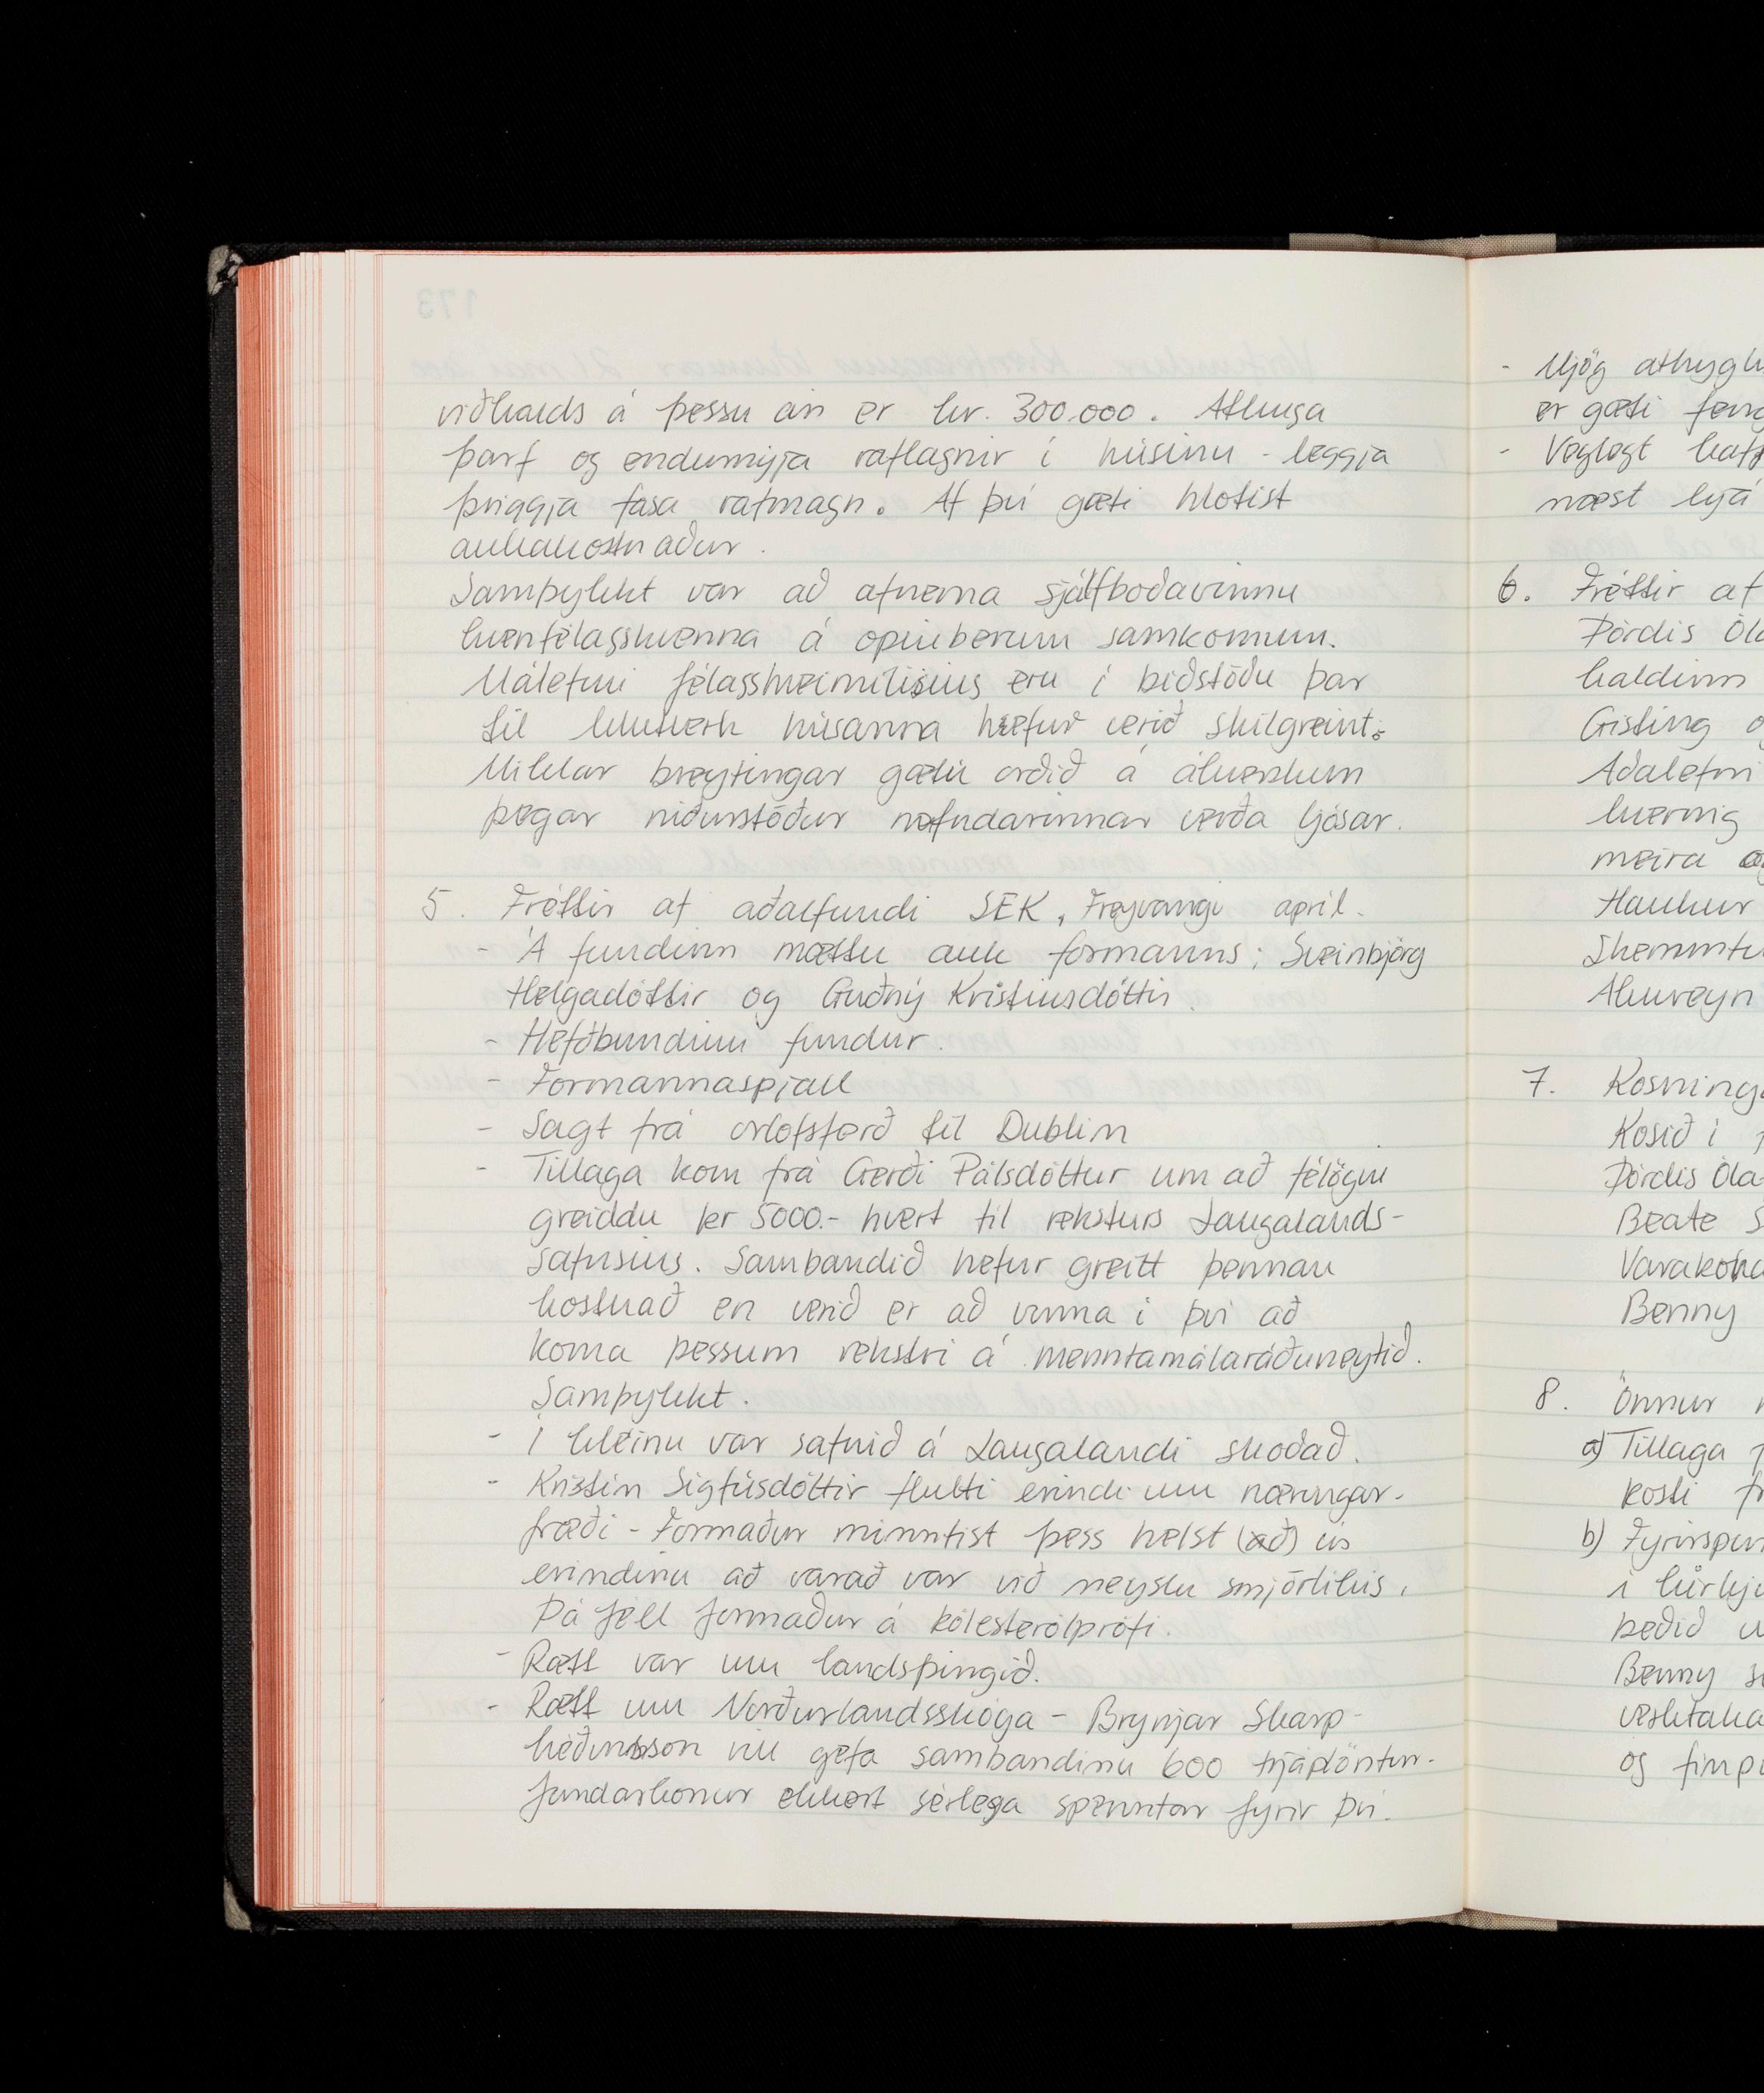 viðhalds á þessu ári er kr. 300.000. Athuga
þarf og endurnýja raflagnir í húsinu - leggja
þriggja fasa rafmagn. Af því gæti hlotist
aukakostnaður.
Samþykkt var að afnema sjálfboðavinnu
kvenfélagskvenna á opinberum samkomum.
Málefni félagsheimilisins eru í biðstöðu þar
til hlutverk húsanna hefur verið skilgreint.
Miklar breytingar gætu orðið á álverkum
þegar niðurstöður nefndarinnar verða ljósar.
5. Fréttir af aðalfundi SEK, Freyvangi apríl.
- Á fundinn mættu auk formanns: Sveinbjörg
Helgadóttir og Guðný Kristinsdóttir.
- Hefðbundinn fundur.
- Formannaspjall
- Sagt frá orlofsferð til Dublin
- Tillaga kom frá Gerði Pálsdóttur um að félögin
greiddu kr 5000.- hvert til reksturs Laugalands-
safnsins. Sambandið hefur greitt þennan
kostnað en verið er að vinna í því að
koma þessum rekstri á menntamálaráðuneytið.
Samþykkt.
- Í hléinu var safnið á Laugalandi skoðað.
- Kristín Sigfúsdóttir flutti erindi um næringar-
fræði - Formaður minntist þess helst (að) úr
erindinu að varað var við neyslu smjörlíkis.
Þá féll formaður á kólesterólprófi.
- Rætt var um landsþingið.
- Rætt um Norðurlandsskóga - Brynjar Skarp-
héðinsson vill gefa sambandinu 600 trjáplöntur.
Fundarkonur ekkert sérlega spenntar fyrir því.
- Mjög athygli
er gæti feng
- Veglegt kaff
næst hjá
6. Fréttir af
Þórdís Óla
haldinn
Gisting o
Aðalefni
hvernig
meira og
Haukur
Skemmtu
Akureyri
7. Kosninga
Kosið í
Þórdís Óla
Beate S
Varakona
Benny
8. Önnur m
a) Tillaga
kosti fr
b) Fyrirspur
í kirkju
beðið u
Benny s
verktaka
og fimp